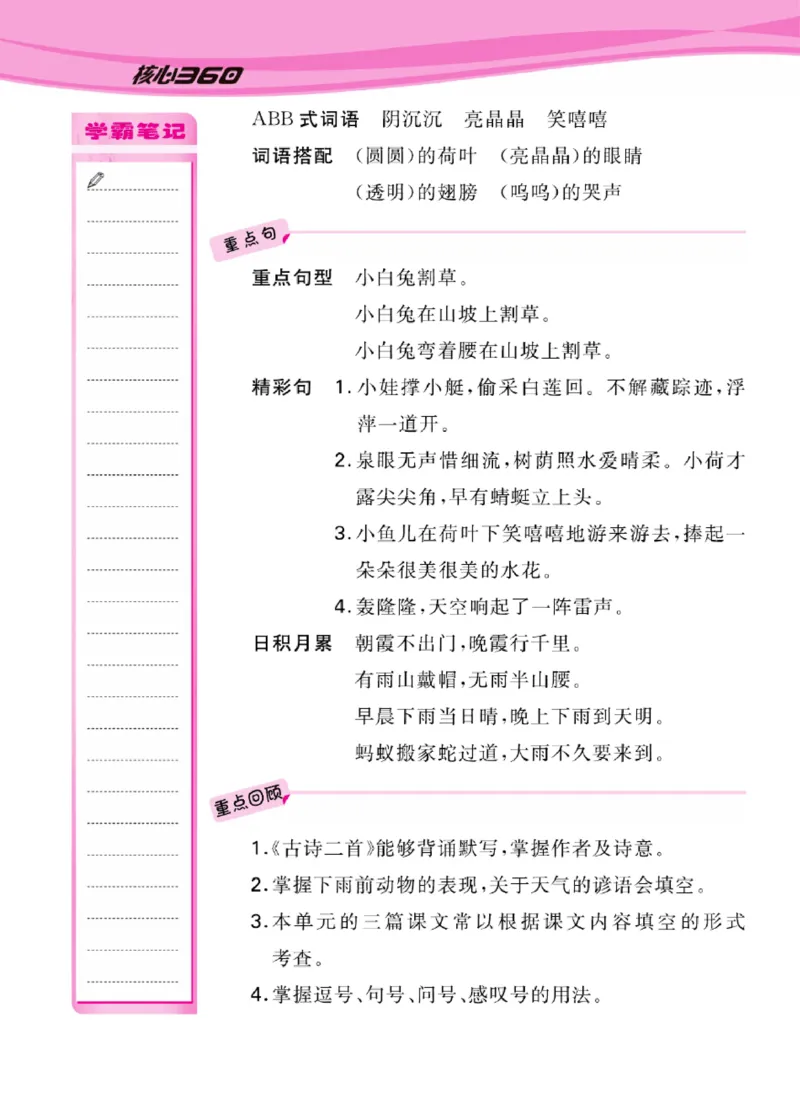 核心360
学霸笔记
ABB式词语 阴沉沉 亮晶晶 笑嘻嘻
词语搭配 (圆圆)的荷叶 (亮晶晶)的眼睛
(透明)的翅膀 (呜呜)的哭声
重点句
重点句型 小白兔割草。
小白兔在山坡上割草。
小白兔弯着腰在山坡上割草。
精彩句 1.小娃撑小艇,偷采白莲回。不解藏踪迹,浮
萍一道开。
2.泉眼无声惜细流,树荫照水爱晴柔。小荷才
露尖尖角,早有蜻蜓立上头。
3.小鱼儿在荷叶下笑嘻嘻地游来游去,捧起一
朵朵很美很美的水花。
4.轰隆隆,天空响起了一阵雷声。
日积月累 朝霞不出门,晚霞行千里。
有雨山戴帽,无雨半山腰。
早晨下雨当日晴,晚上下雨到天明。
蚂蚁搬家蛇过道,大雨不久要来到。
重点回顾
1.《古诗二首》能够背诵默写,掌握作者及诗意。
2.掌握下雨前动物的表现,关于天气的谚语会填空。
3.本单元的三篇课文常以根据课文内容填空的形式
考查。
4.掌握逗号、句号、问号、感叹号的用法。